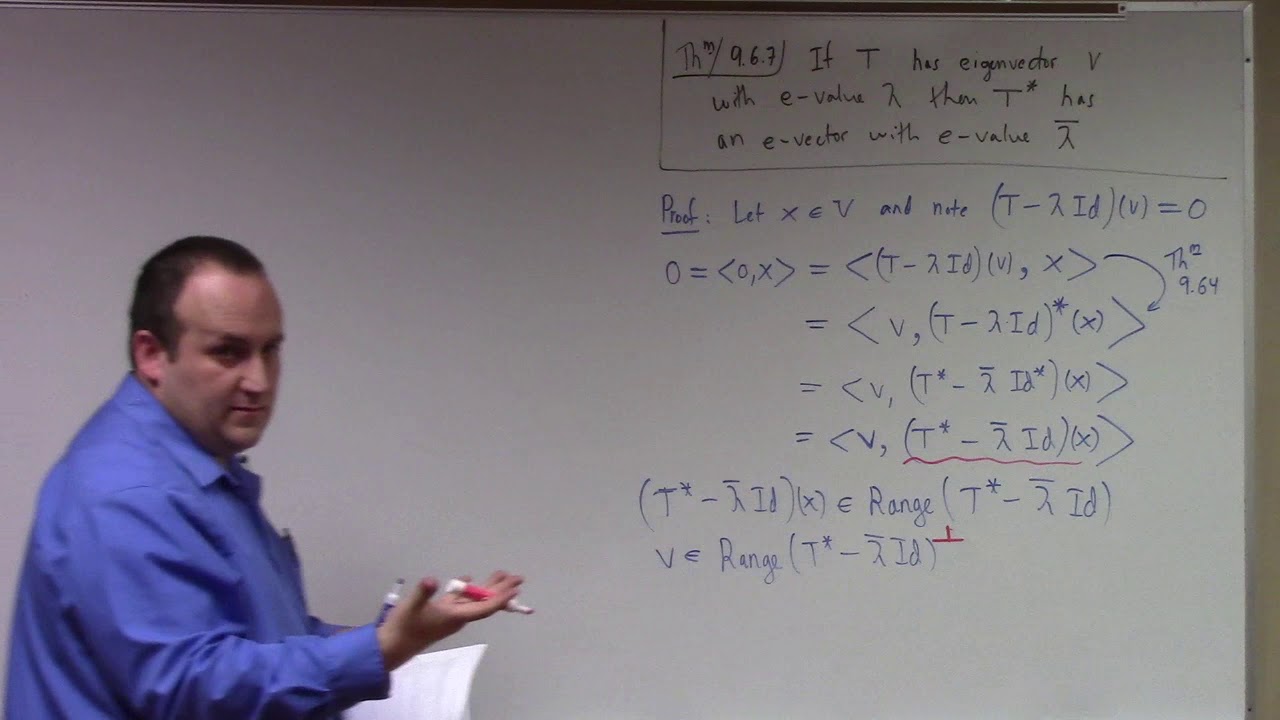 Thᵐ/ 9.6.7) If T has eigenvector v
with e-value λ then T* has
an e-vector with e-value λ̄
Proof: Let x ∈ V and note (T - λ Id)(v) = 0
0 = <0,x> = <(T - λ Id)(v), x>
Thᵐ
9.64
= <v, (T - λ·Id)*(x)>
= <v, (T* - λ̄ Id*)(x)>
= <v, (T* - λ̄ Id)(x)>
(T* - λ̄ Id)(x) ∈ Range(T* - λ̄ Id)
v ∈ Range(T* - λ̄ Id)⊥